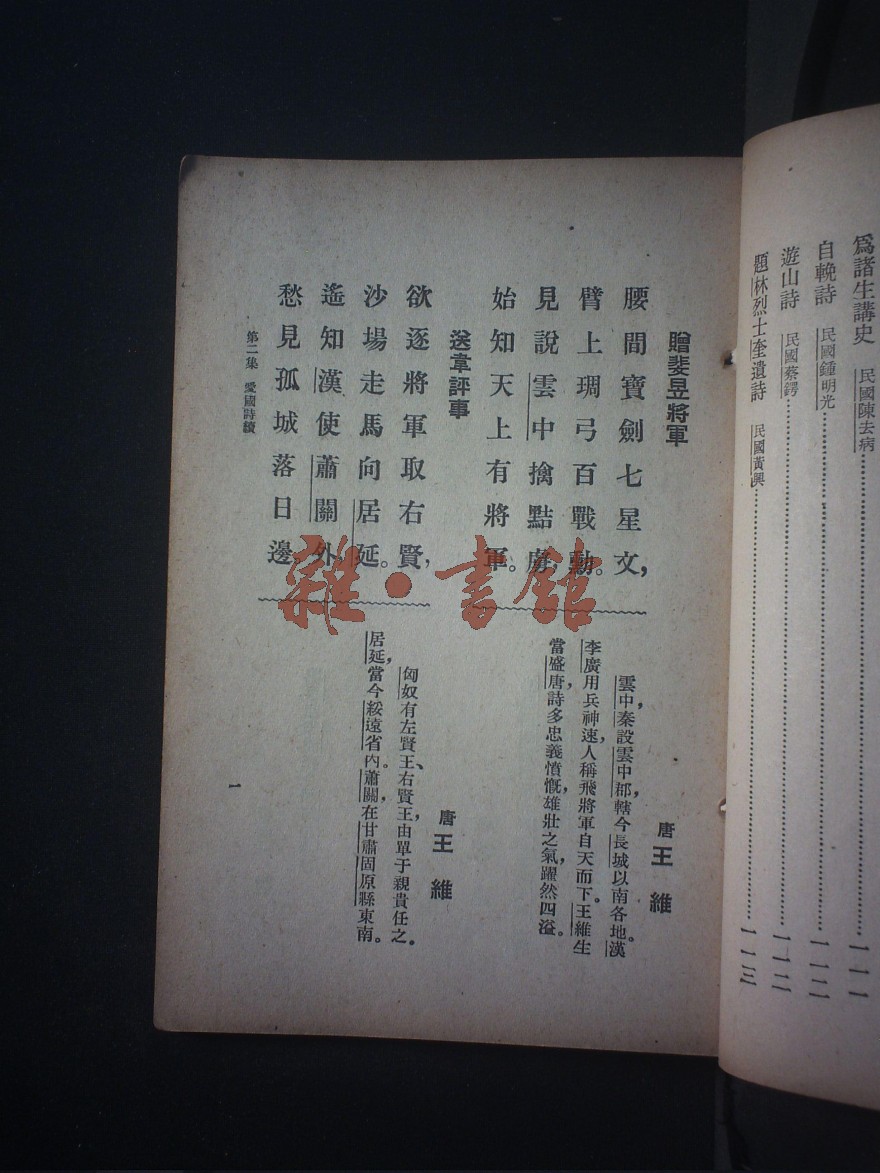 爲諸生講史 民國陳去病……一一一
自輓詩 民國鍾明光……一一二
遊山詩 民國蔡鍔……一一二
題林烈士奎遺詩 民國黃興……一一三
贈裴旻將軍
唐 王維
腰間寶劍七星文，
臂上琱弓百戰勳。
見說雲中擒黠虜，
始知天上有將軍。
雲中，秦設雲中郡，轄今長城以南各地。漢
李廣用兵神速，人稱飛將軍自天而下。王維生
當盛唐，詩多忠義憤慨，雄壯之氣，躍然四溢。
送韋評事
唐 王維
欲逐將軍取右賢，
沙場走馬向居延。
遙知漢使蕭關外，
愁見孤城落日邊。
匈奴有左賢王、右賢王，由單于親貴任之。
居延，當今綏遠省內。蕭關，在甘肅固原縣東南。
第二集 愛國詩續
一
雜·書館